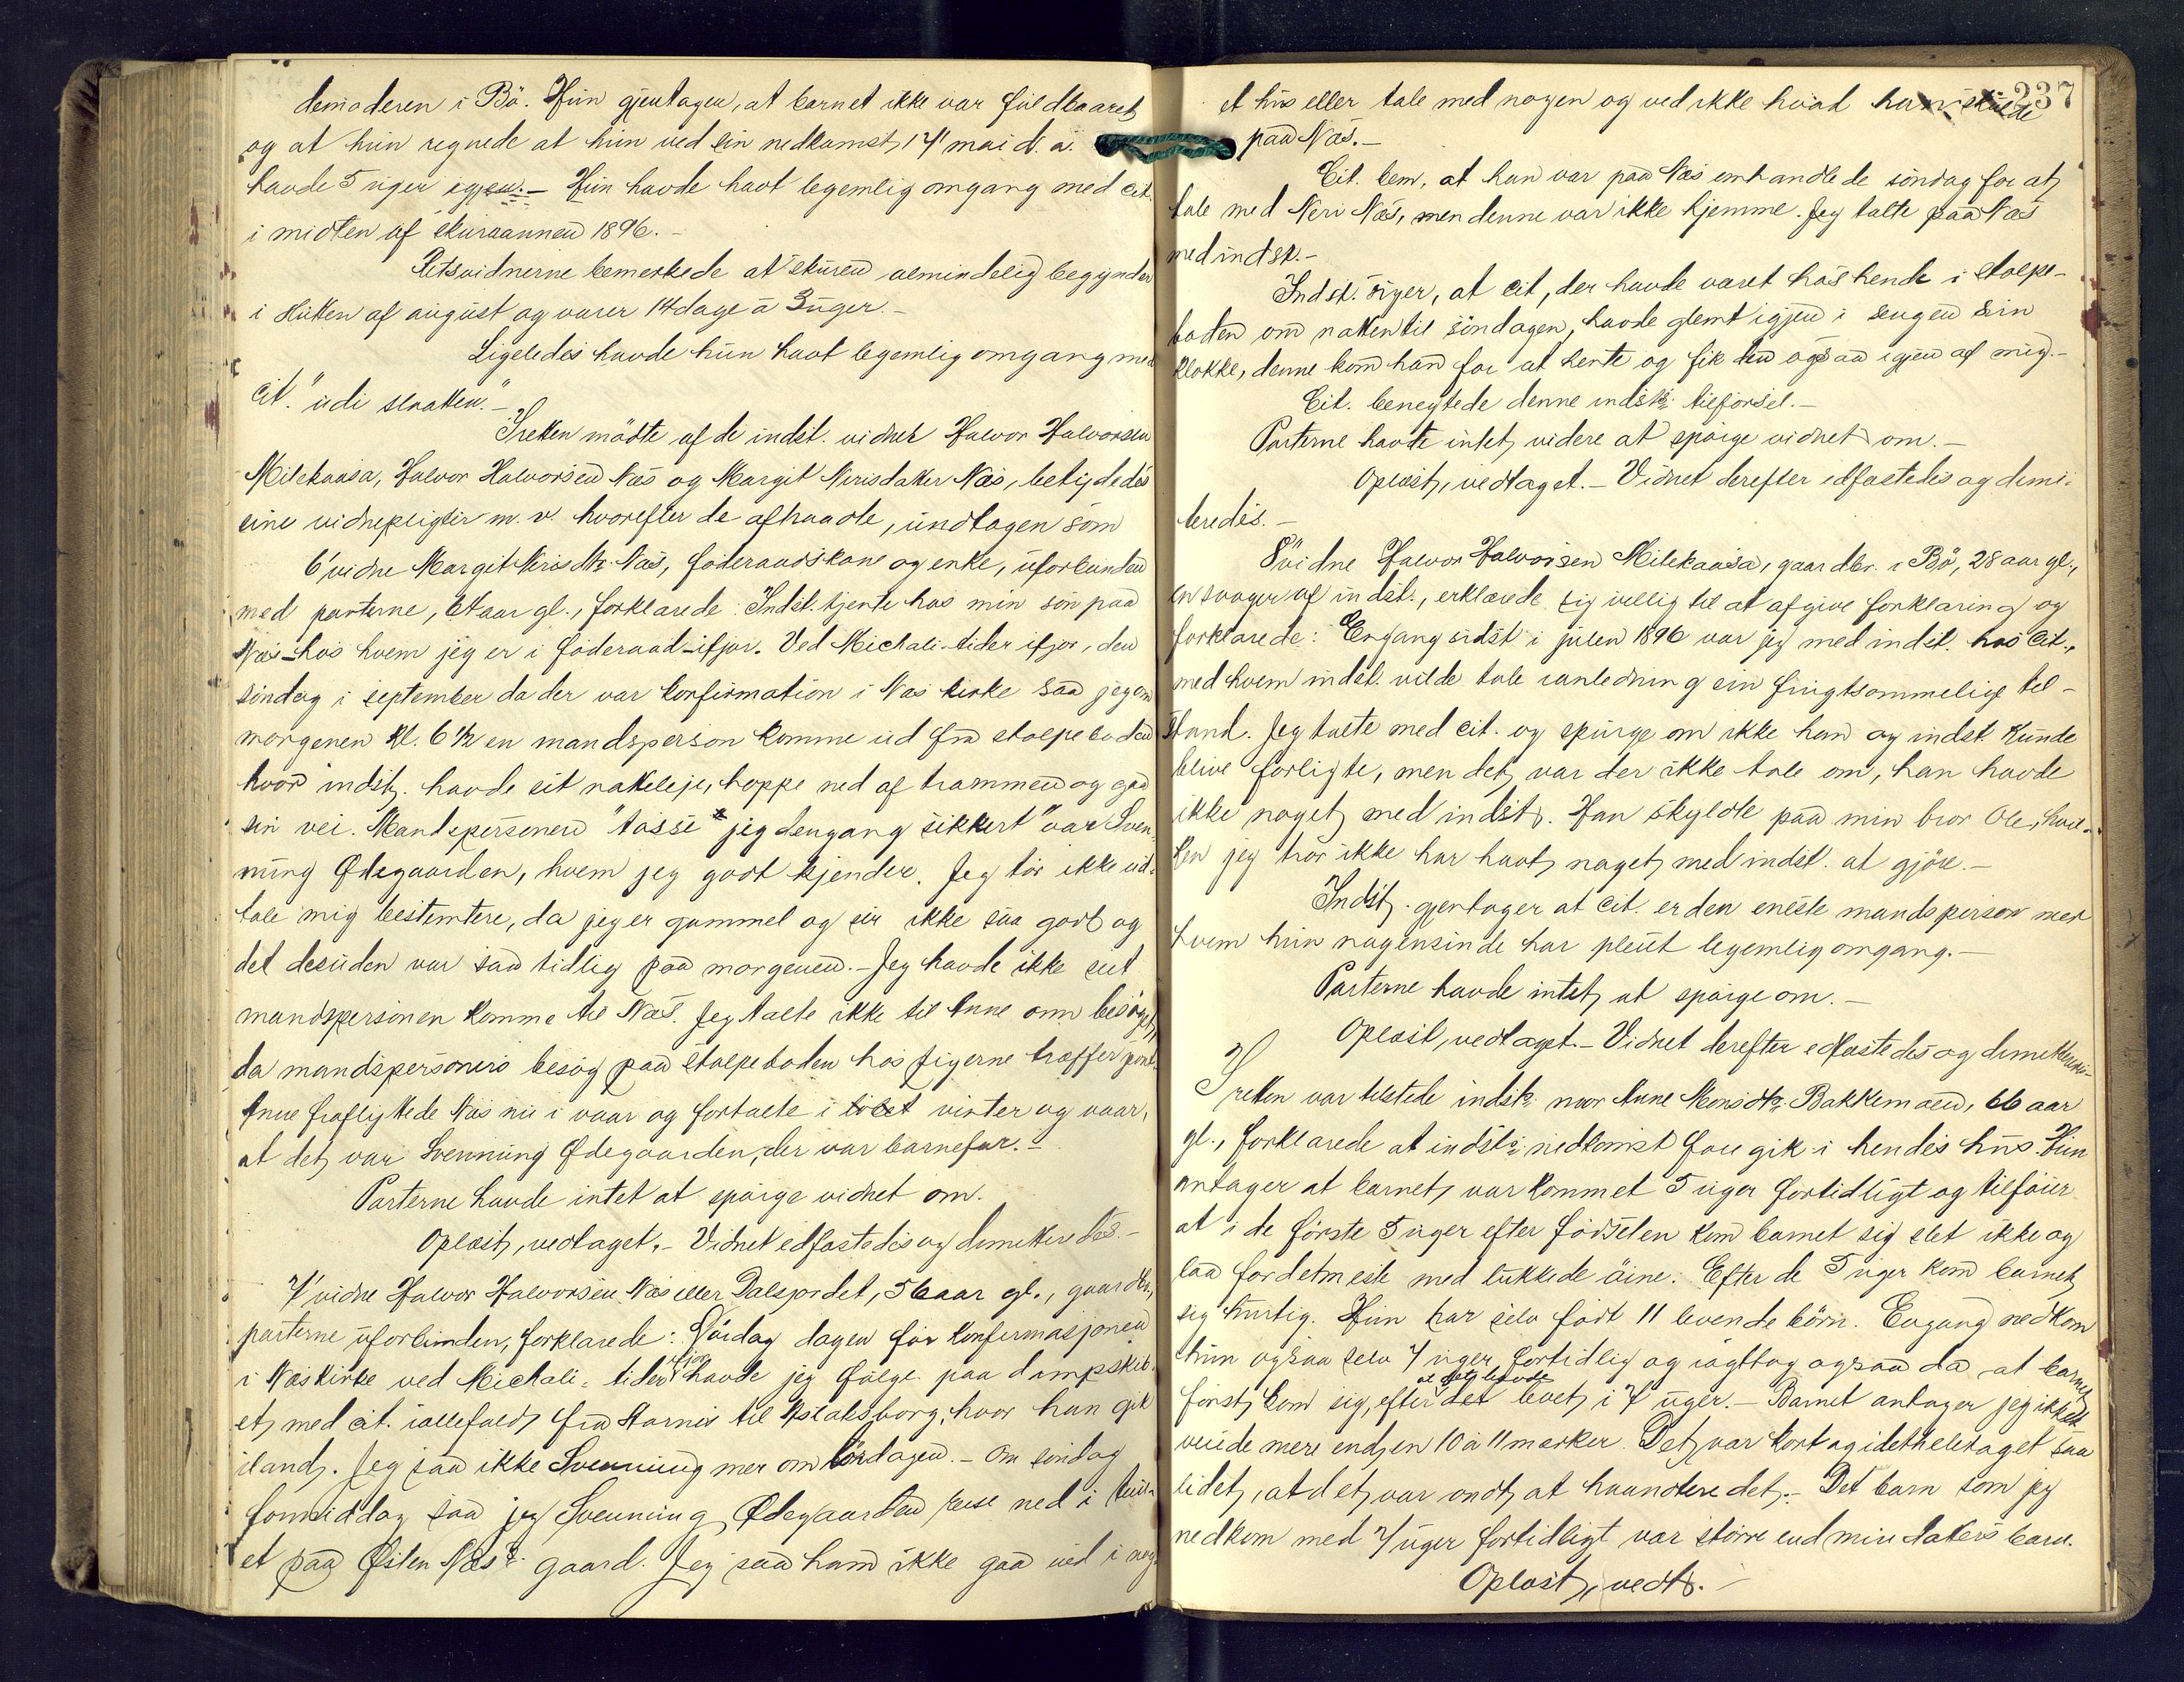 demoderen i Bö. Hun gjentager, at barnet ikke var fuldbaaret
og at hun regnede at hun ved sin nedkomst 14' mai d. a.
havde 5 uger igjen. - Hun havde havt legemlig omgang med cit.
i midten af skuraannen 1896. -
Retsvidnerne bemerkede at skuren almindelig begynder
i slutten af august og varer 14 dage à 3 uger. -
Ligeledes havde hun havt legemlig omgang med
cit. "udi slaatten". -
I retten mödte af de indst. vidner Halvor Halvorsen
Milekaasa, Halvor Halvorsen Næs og Margit Nirisdatter Næs, betydedes
sine vidnepligter m. v. hvorefter de aftraadte, undtagen som
6' vidne Margit Nirisdtr. Næs, föderaadskone og enke, uforbunden
med parterne, aar gl., forklarede: Indst. tjente hos min sön paa
Næs - hos hvem jeg er i föderaad - ifjor. Ved Michali-tider ifjor, den
söndag i september da der var konfirmation i Næs kirke saa jeg om
morgenen kl. 6 1/2 en mandsperson komme ud fra stolpeboden
hvor indst. havde sit natteleje, hoppe ned af trammen og gaa
sin vei. Mandspersonen "tøssi jeg dengang sikkert" var Sven-
nung Ødegaarden, hvem jeg godt kjender. Jeg tör ikke ud-
tale mig bestemtere, da jeg er gammel og ser ikke saa godt og
det desuden var saa tidlig paa morgenen. - Jeg havde ikke seet
mandspersonen komme til Næs. Jeg talte ikke til Anne om besöget,
da mandspersoners besög paa stolpeboden hos pigerne træffer
Anne fraflyttede Næs nu i vaar og fortalte i löbet vinter og vaar,
at det var Svennung Ødegaarden, der var barnefar. -
Parterne havde intet at spörge vidnet om.
Oplæst, vedtaget. - Vidnet edfæstedes og dimitteredes. -
7' vidne Halvor Halvorsen Næs eller Dalsjordet, 56 aar gl., gaardbr.,
parterne uforbunden, forklarede: Lördag dagen för konfirmasjonen
i Næs kirke ved Michali-tider ifjor havde jeg fölge paa dampskib-
et med cit. iallefald fra Aarnes til Askalsborg, hvor han gik
iland. Jeg saa ikke Svennung mer om lördagen. - Om söndag
formiddag saa jeg Svennung Ødegaarden reise ned i tun-
et paa Østen Næs's gaard. Jeg saa ham ikke gaa ind i nog-
237
et hus eller tale med nogen og ved ikke hvad han skulde
paa Næs. -
Cit. bem. at han var paa Næs omhandlede söndag for at
tale med Neri Næs, men denne var ikke hjemme. Jeg talte paa Næs
med indst. -
Indst. siger, at cit., der havde været hos hende i stolpe-
boden om natten til söndagen, havde glemt igjen i sengen sin
klokke, denne kom han for at hente og fik den ogsaa igjen af mig. -
Cit. benegtede denne indsts. tilförsel. -
Parterne havde intet videre at spörge vidnet om. -
Oplæst, vedtaget. - Vidnet derefter edfæstedes og dimi-
teredes. -
8' vidne Halvor Halvorsen Milekaasa, gaardbr. i Bö, 28 aar gl.,
en svoger af indst., erklærede sig villig til at afgive forklaring og
forklarede: Engang sidst i julen 1896 var jeg med indst. hos cit.,
med hvem indst. vilde tale ianledning sin frugtsommelige til-
stand. Jeg talte med cit. og spurge om ikke han og indst. kunde
blive forligte, men det var der ikke tale om, han havde
ikke noget med indst. Han skyldte paa min bror Ole, hvil-
ken jeg tror ikke har havt noget med indst. at gjöre. -
Indst. gjentager at cit. er den eneste mandsperson med
hvem hun nogensinde har pleiet legemlig omgang. -
Parterne havde intet at spörge om. -
Oplæst, vedtaget. - Vidnet derefter edfæstedes og
I retten var tilstede indsts. mor Anne Monsdtr. Bakkemoen, 66 aar
gl., forklarede at indsts. nedkomst foregik i hendes hus. Hun
antager at barnet var kommet 5 uger fortidligt og tilföier
at i de förste 5 uger efter födselen kom barnet sig slet ikke og
laa for det meste med lukkede öine. Efter de 5 uger kom barnet
sig hurtig. Hun har selv födt 11 levende börn. Engang nedkom
hun ogsaa selv 7 uger fortidlig og iagttog ogsaa da at barnet
först kom sig, efter at det havde levet i 7 uger. - Barnet antager jeg ikke at
veiede mere end en 10 à 11 marker. Det var kort og idetheletaget saa
lidet, at det var ondt at haandtere det. - Det barn som jeg
nedkom med 7 uger fortidligt var större end min datters barn.
Oplæst, vedt. -